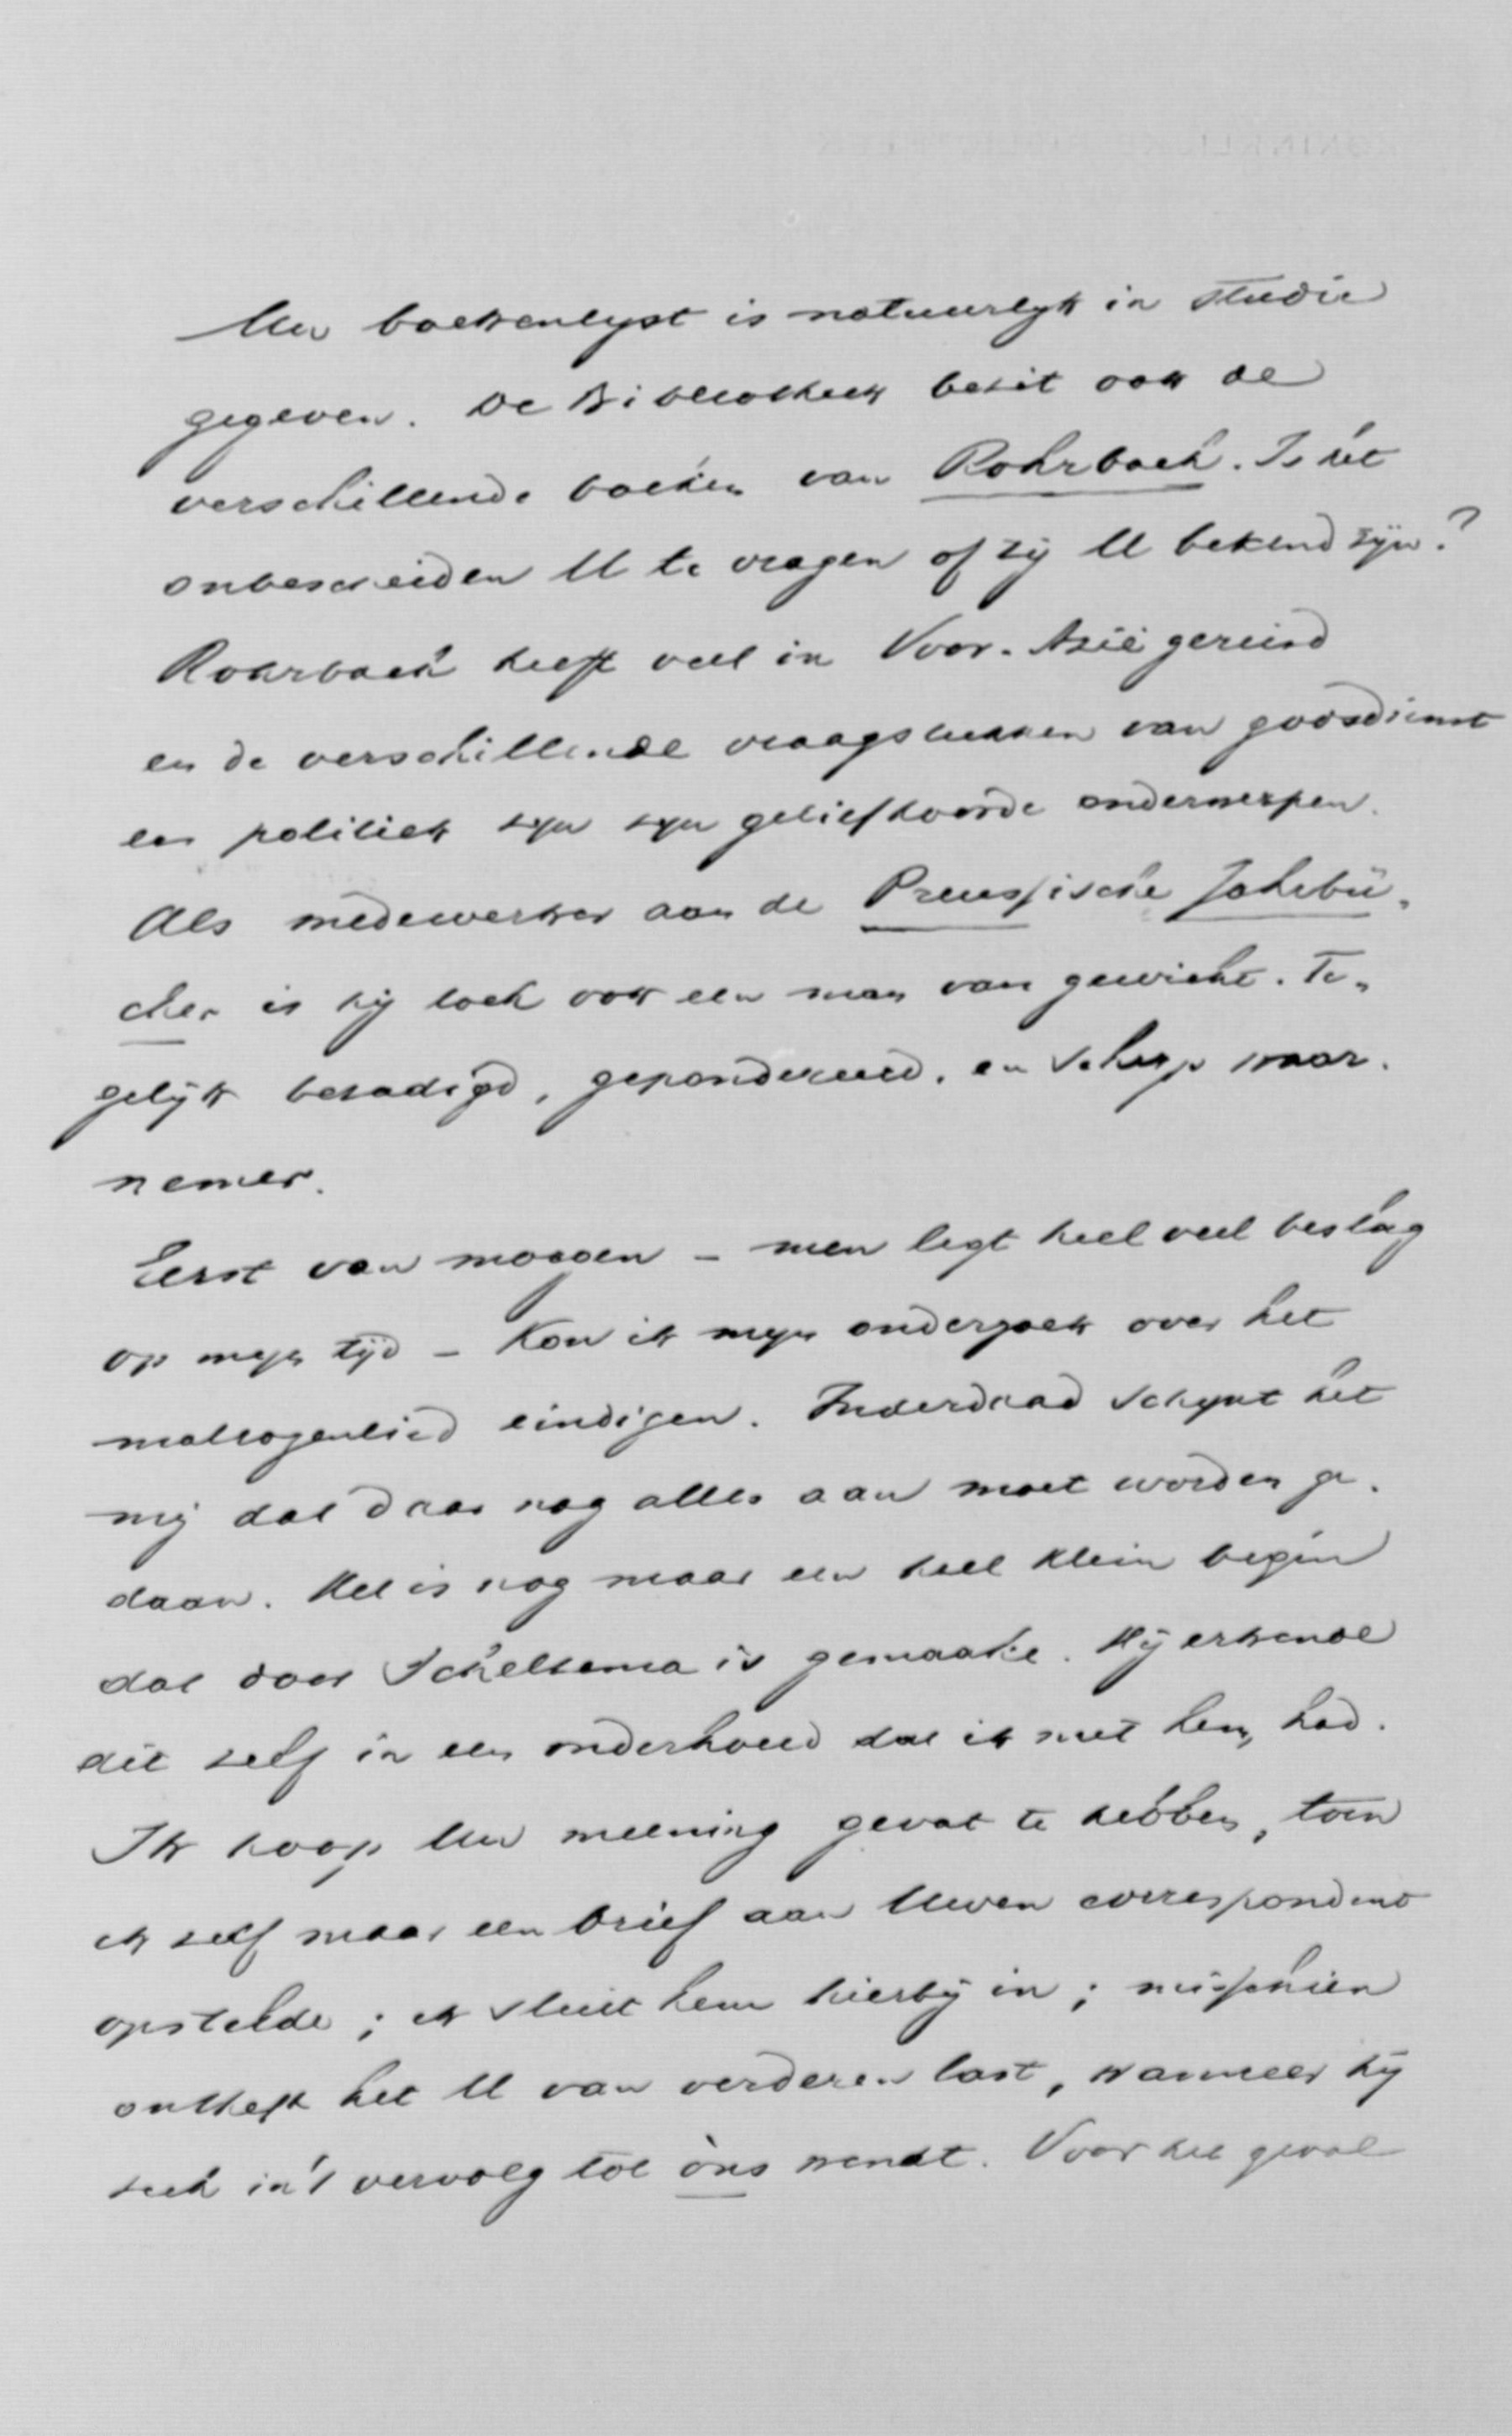 Uw boekenlyst is natuurlyk in studie
gegeven. De Bibliotheek bezit ook de
verschillende boeken van Rohrbach. Is het
onbescheiden U te vragen of zij U bekend zijn?
Rohrbach heeft veel in Voor-Azië gereisd
en de verschillende vraagstukken van godsdienst
en politiek zyn zyn geliefkoosde onderwerpen.
Als medewerker aan de Preussische Jahrbü-
cher is hij toch ook een man van gewicht. Te-
gelijk bezadigd, gepondereerd, en scherp waar-
nemer.
Eerst van morgen – men legt heel veel beslag
op myn tijd – kon ik myn onderzoek over het
matrozenlied eindigen. Inderdaad schynt het
mij dat daar nog alles aan moet worden ge-
daan. Het is nog maar een heel klein begin
dat door Scheltema is gemaakt. Hij erkende
dit zelf in een onderhoud dat ik met hem had.
Ik hoop Uw meening gevat te hebben, toen
ik zelf maar een brief aan Uwen correspondent
opstelde; ik sluit hem hierbij in; misschien
ontheft het U van verderen last, wanneer hij
zich in 't vervolg tot òns wendt. Voor het geval